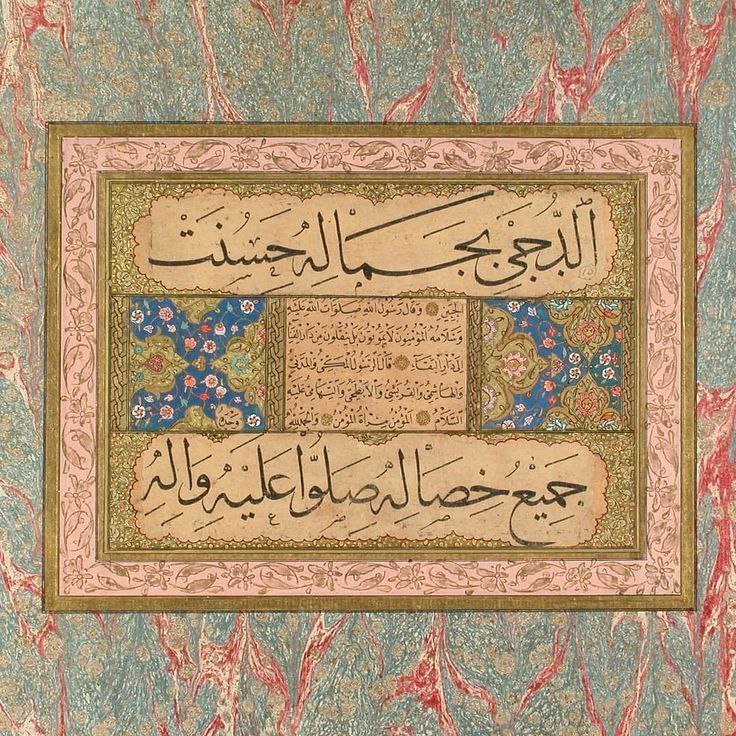 الدُّجَى بِجَمَالِهِ حَسُنَتْ
وقال رسول الله صلوات الله عليه
وسلامه المؤمنون لا يموتون بل ينقلون من دار الفنا
الى دار البقاء قال الرسول المكي والمدني
والهاشمي والقرشي والابطحي والتهامي عليه
السلام المؤمن مرآة المؤمن والحمد لله
وحده
جَمِيعُ خِصَالِهِ صَلُّوا عَلَيْهِ وَآلِهِ